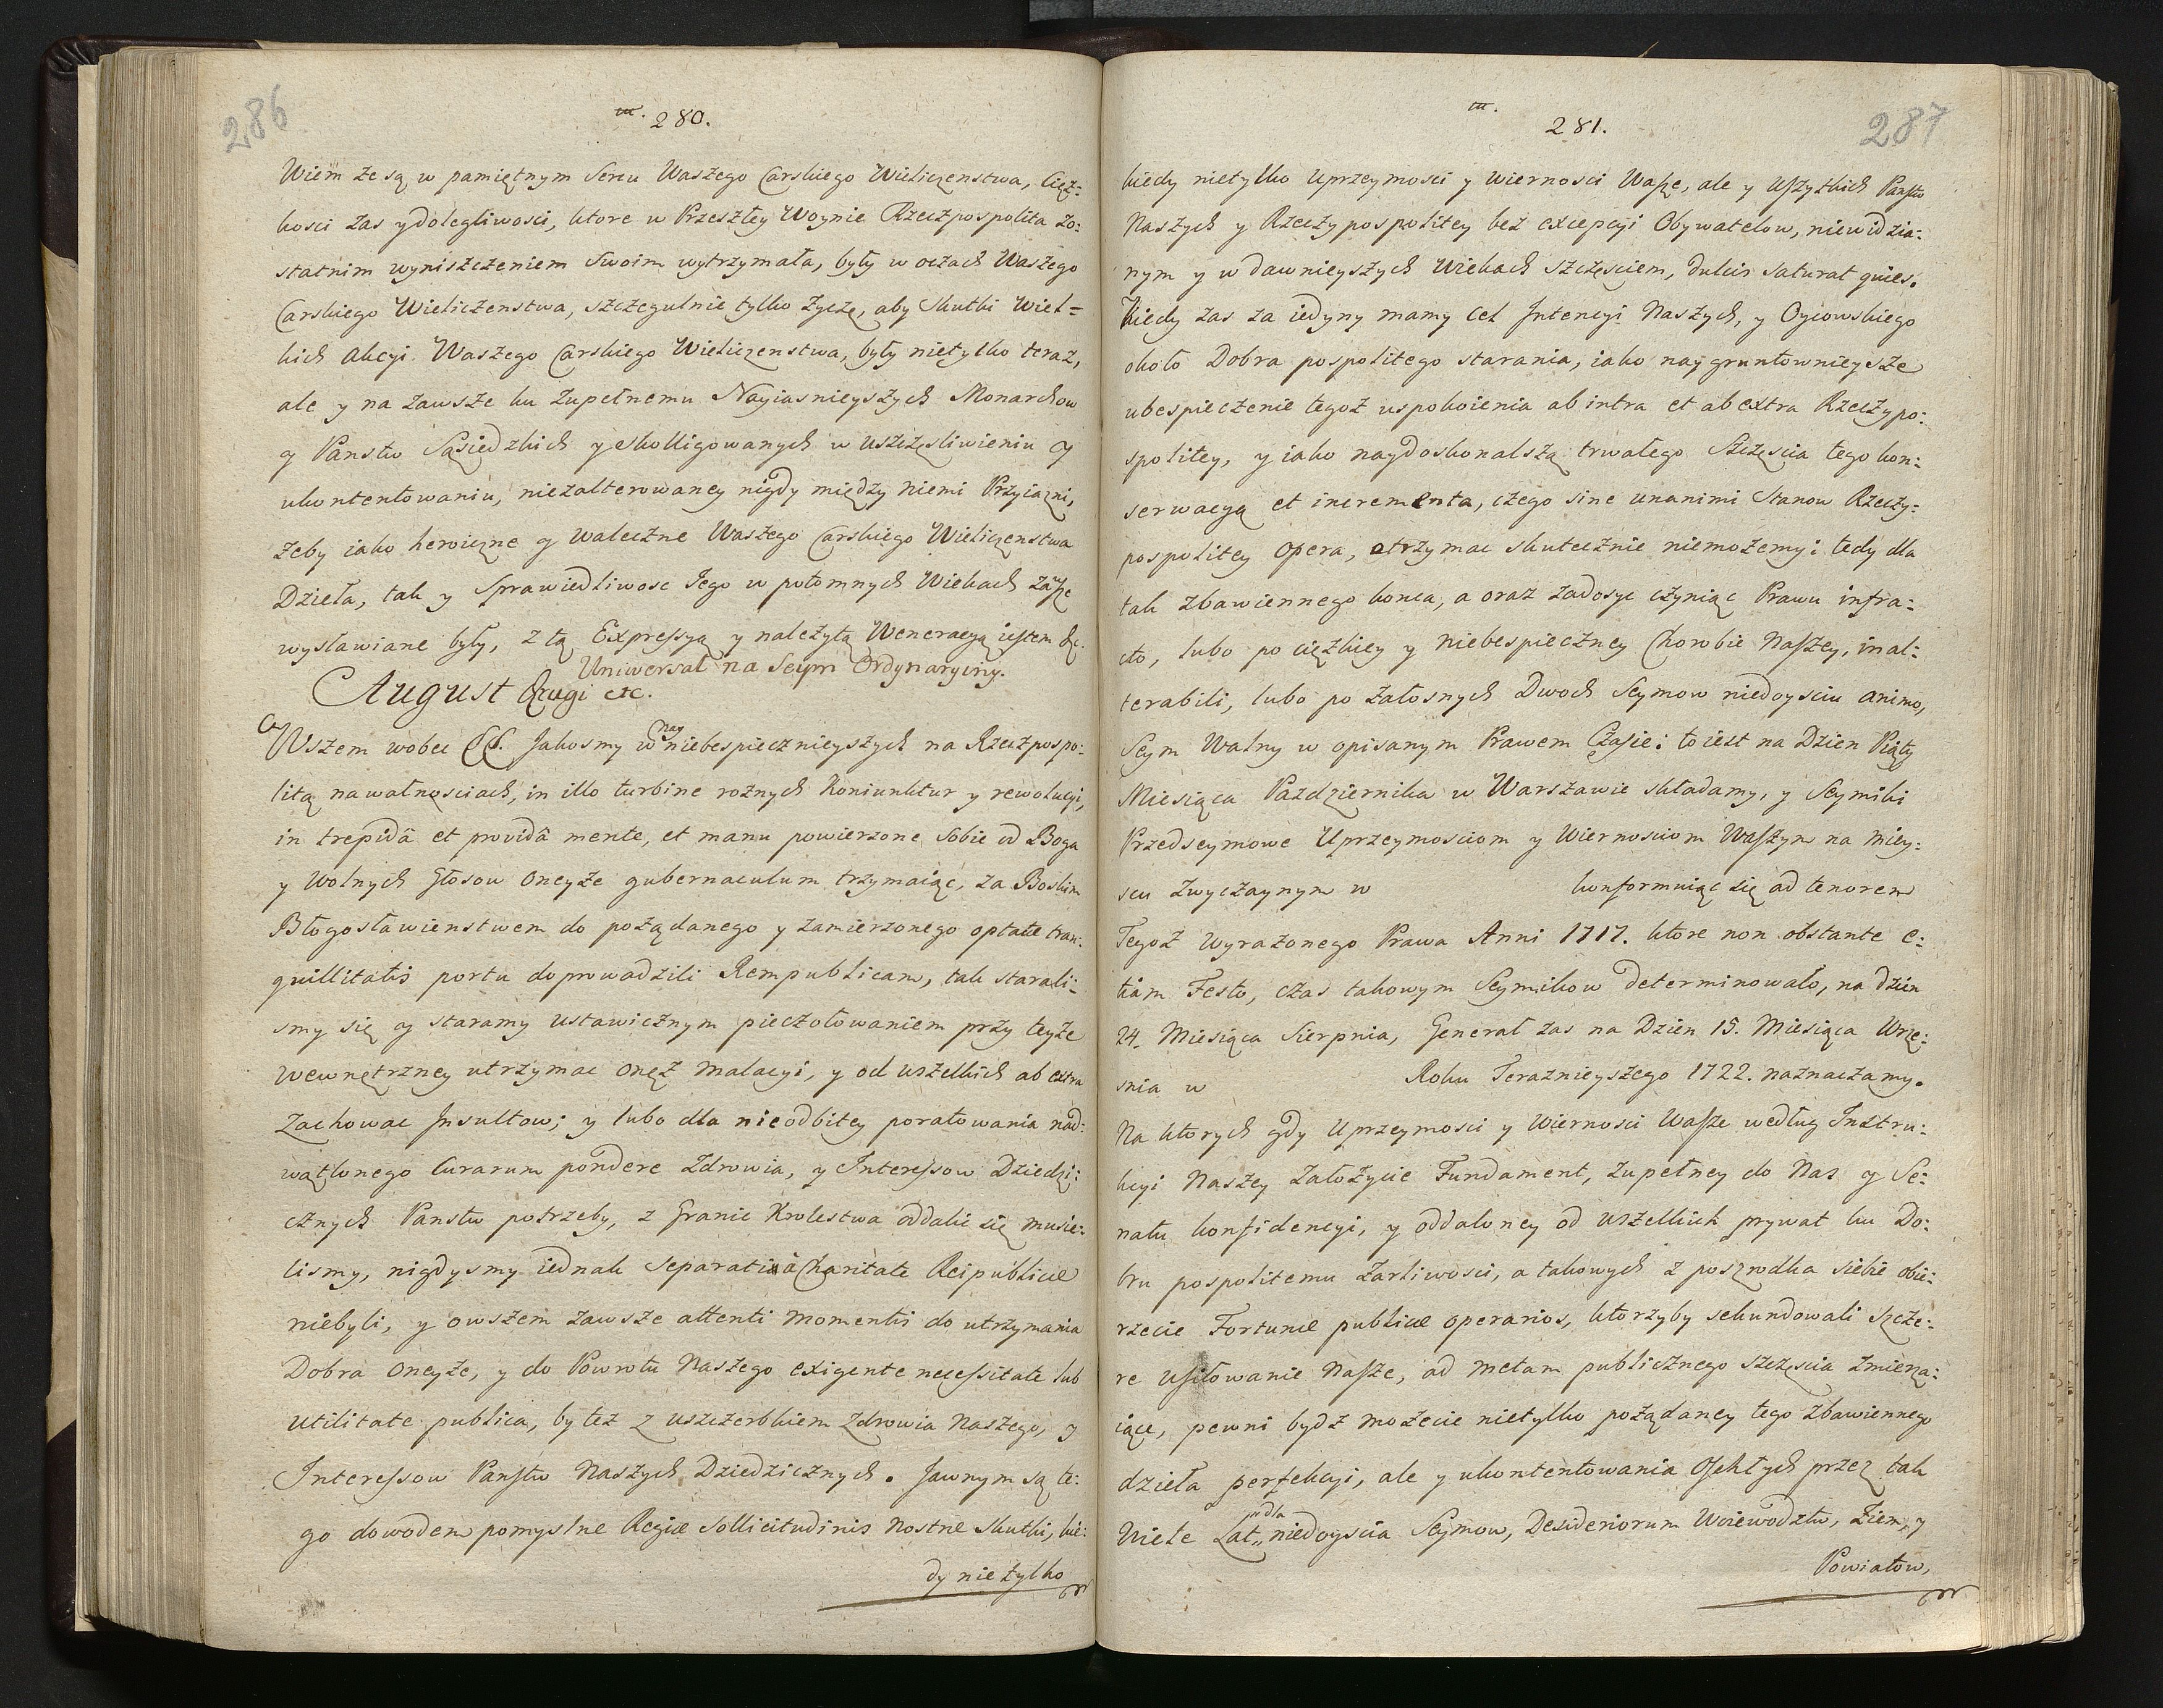 286
m. 280.
Wiem że są w pamiętnym Sercu Waszego Carskiego Wieliczenstwa, Cięż:
kosci zas y dolegliwosci, ktore w Przeszłey Woynie Rzeczpospolita zo:
statnim wyniszczeniem Swoim wytrzymała, były w oczach Waszego
Carskiego Wieliczenstwa, szczegulnie tylko życzę, aby Skutki Wiel=
kich Akcyi Waszego Carskiego Wieliczenstwa, były nietylko teraz,
ale y na zawsze ku zupełnemu Nayiasnieyszych Monarchow
y Panstw Sąsiedzkich y skolligowanych w uszczęsliwieniu y
ukontentowaniu, niezalterowaney nigdy między niemi Przyiazni,
żeby iako heroiczne y waleczne Waszego Carskiego Wieliczenstwa
Dzieła, tak y Sprawiedliwosc Jego w potomnych Wiekach zawsze
wysławiane były, z tą Expressyą y należytą Weneracyą iestem &c.
Uniwersał na Seym Ordynaryiny.
August Drugi etc.
Wszem wobec &c. Jakosmy w nayniebespiecznieyszych na Rzeczpospo:
litą nawałnosciach, in illo turbine rożnych Koniunktur y rewolucyi,
in trepidâ et providâ mente, et manu powierzone Sobie od Boga
y Wolnych Głosow oneyże gubernaculum trzymaiąc, za Boskim
Błogosławienstwem do pożądanego y zamierzonego optatæ tran:
quillitatis portu doprowadzili Rempublicam, tak starali:
smy się y staramy ustawicznym pieczołowaniem przy teyże
wewnętrzney utrzymac onęż malacyi, y od wszelkich ab extra
Zachowac Insultow; y lubo dla nieodbitey poratowania nad:
wątlonego Curarum pondere Zdrowia, y Interessow Dziedzi:
cznych Panstw potrzeby, z Granic Krolestwa oddalic się musie:
lismy, nigdysmy iednak Separati à Charitate Reipublicæ
niebyli, y owszem zawsze attenti momentis do utrzymania
Dobra oneyże, y do Powrotu Naszego exigente necessitate lub
utilitate publica, by też z uszczerbkiem Zdrowia Naszego, y
Interessow Panstw Naszych Dziedzicznych. Jawnym są te:
go dowodem pomyslne Regiæ sollicitudinis Nostræ Skutki, kie:
dy nietylko
m. 281.
287
kiedy nietylko Uprzeymosci y wiernosci Wasze, ale y Wszytkich Panstw
Naszych y Rzeczypospolitey bez excepcyi Obywatelow, niewidzia:
nym y w dawnieyszych Wiekach szczęsciem, dulcis saturat quies.
Kiedy zas za iedyny mamy cel Intencyi Naszych, y Oycowskiego
około Dobra pospolitego starania, iako naygruntownieysze
ubespieczenie tegoż uspokoienia ab intra et ab extra Rzeczypo:
spolitey, y iako naydoskonalszą trwałego Szczęscia tego kon:
serwacyą et incrementa, czego sine unanimi Stanow Rzeczy:
pospolitey Opera, otrzymac skutecznie niemożemy; tedy dla
tak zbawiennego konca, a oraz zadosyc czyniąc Prawu infra:
cto, lubo po ciężkiey y niebespieczney Chorobie Naszey, inal:
terabili, lubo po żałosnych Dwoch Seymow niedoysciu animo,
Seym Walny w opisanym Prawem Czasie: to iest na Dzien Piąty
Miesiąca Pazdziernika w Warszawie składamy, y Seymiki
Przedseymowe Uprzeymosciom y Wiernosciom Waszym na miey:
scu zwyczaynym w konformuiąc się ad tenorem
Tegoż wyrażonego Prawa Anni 1717. ktore non obstante e:
tiam Festo, czas takowym Seymikow determinowało, na dzien
24. Miesiąca Sierpnia, Generał zas na Dzien 15. Miesiąca Wrze:
snia w Roku Teraznieyszego 1722. naznaczamy.
Na ktorych gdy Uprzeymosci y Wiernosci Wasze według Instru:
kcyi Naszey założycie Fundament, zupełney do Nas y Se:
natu konfidencyi, y oddaloney od wszelkich prywat ku Do:
bru pospolitemu żarliwosci, a takowych z poszrodka siebie obie:
rzecie Fortunæ publicæ operarios, ktorzyby sekundowali Szcze:
re Usiłowanie Nasze, ad metam publicznego szczęscia zmierza:
iące, pewni bydz możecie nietylko pożądaney tego zbawiennego
dzieła perfekcyi, ale y ukontentowania Osękłych przez tak
wiele Lat „ pdla niedoyscia Seymow, Desideriorum Woiewodztw, Ziem, y
Powiatow,